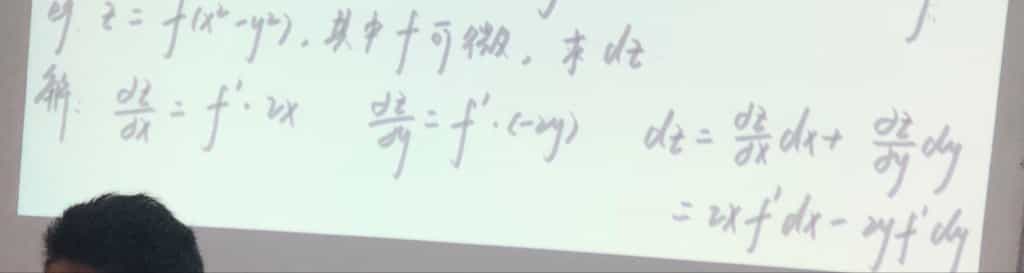 eg. z = f(x²-y²), 其中 f 可微, 求 dz
解: ∂z/∂x = f'·2x   ∂z/∂y = f'·(-2y)   dz = ∂z/∂x dx + ∂z/∂y dy
= 2xf'dx - 2yf'dy